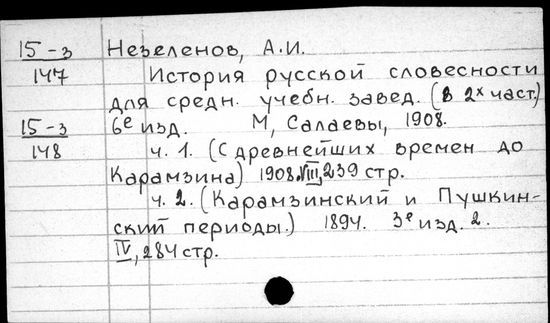 15-з Незеленов, А.И.
147 История русской словесности
для средн. учебн. завед. (в 2х част.)
15-з 6е изд. М, Салаевы, 1908.
148 ч. 1. (С древнейших времен до
Карамзина) 1908. VIII, 239 стр.
ч. 2. (Карамзинский и Пушкин-
ский периоды.) 1894. 3е изд. 2.
IV, 284 стр.